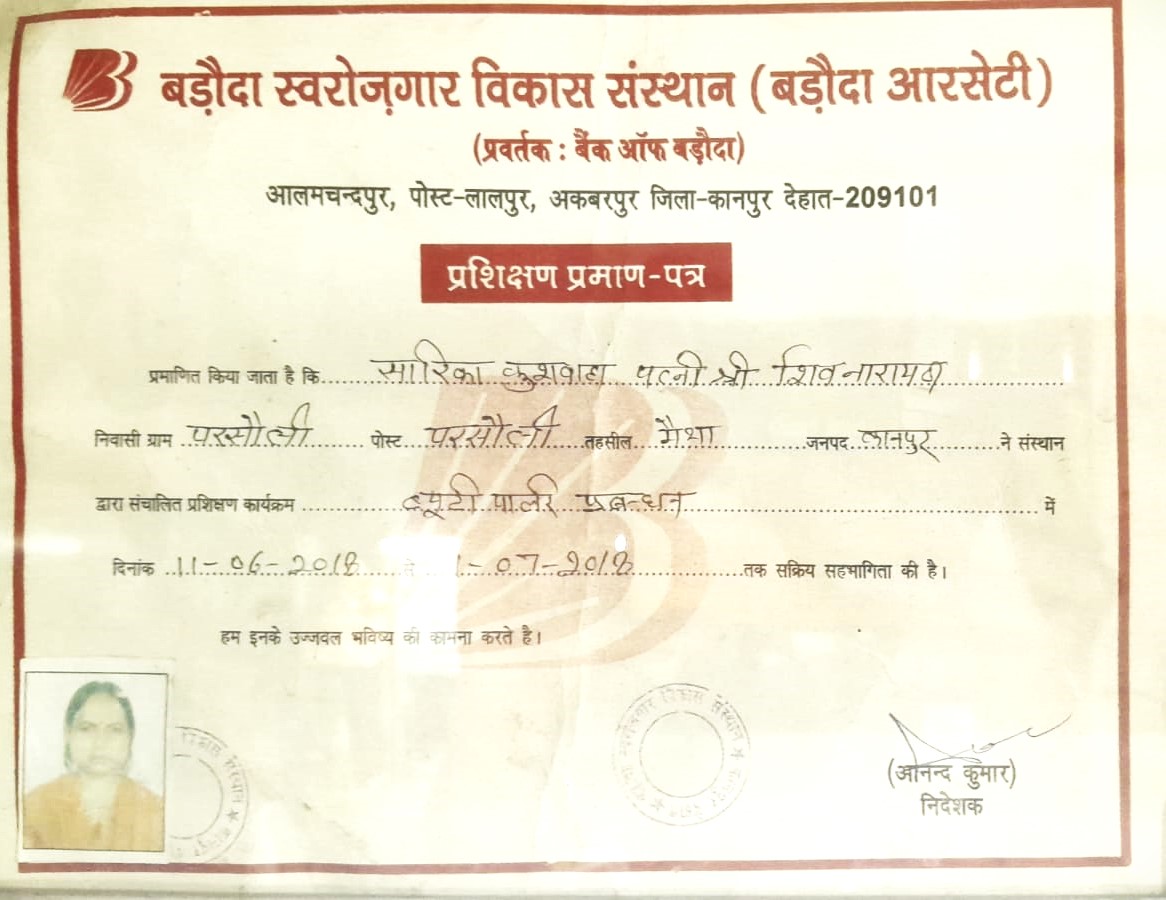 बड़ौदा स्वरोज़गार विकास संस्थान (बड़ौदा आरसेटी)
(प्रवर्तक : बैंक ऑफ बड़ौदा)
आलमचन्दपुर, पोस्ट-लालपुर, अकबरपुर जिला-कानपुर देहात-209101
प्रशिक्षण प्रमाण-पत्र
प्रमाणित किया जाता है कि सारिका कुशवाहा पत्नी श्री
निवासी ग्राम परसौली पोस्ट परसौली तहसील मैथा जनपद कानपुर ने संस्थान
द्वारा संचालित प्रशिक्षण कार्यक्रम ब्यूटी पार्लर प्रबन्धन में
दिनांक 11-06-2018 से 1-07-2018 तक सक्रिय सहभागिता की है।
हम इनके उज्जवल भविष्य की कामना करते है।
विकास संस्थान
स्वरोजगार विकास संस्थान
(आनन्द कुमार)
निदेशक